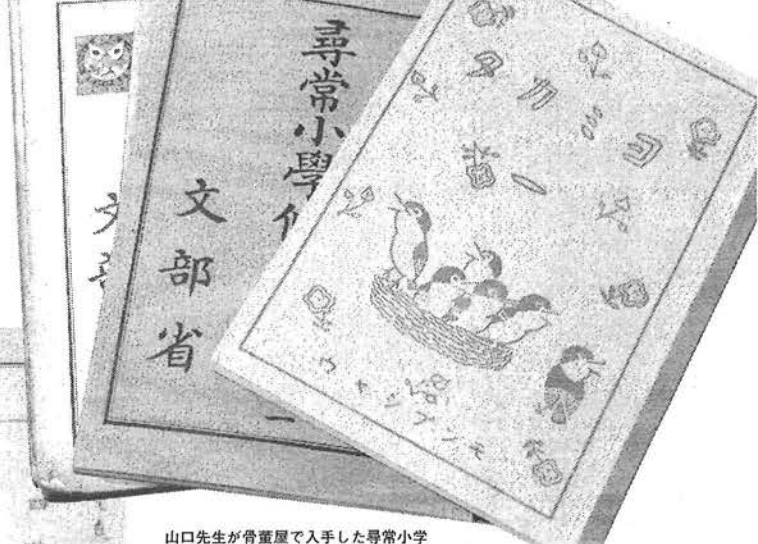 尋常小學
文部省
一
ヨミカタ
一
モンブシヤウ
文
山口先生が骨董屋で入手した尋常小学